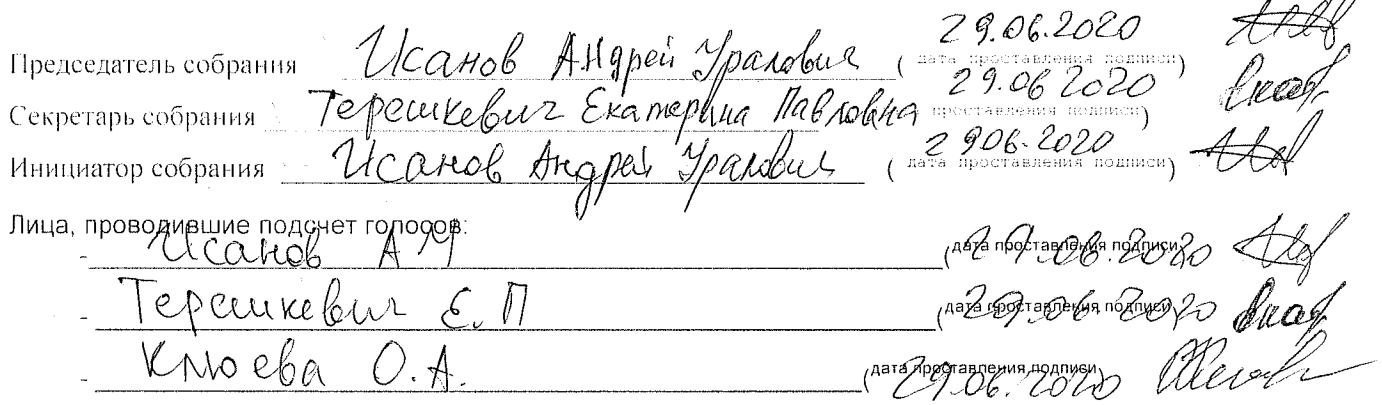 Председатель собрания Исанов Андрей Уралович ( 29.06.2020 дата проставления подписи)
Секретарь собрания Терешкевич Екатерина Павловна 29.06 2020 проставления подписи)
Инициатор собрания Исанов Андрей Уралович ( 2906.2020 дата проставления подписи)
Лица, проводившие подсчет голосов:
- Исанов А У (дата проставления подписи) 29.06.2020
- Терешкевич Е.П (дата проставления подписи) 29.06.2020
- Клюева О.А. (дата проставления подписи) 29.06.2020